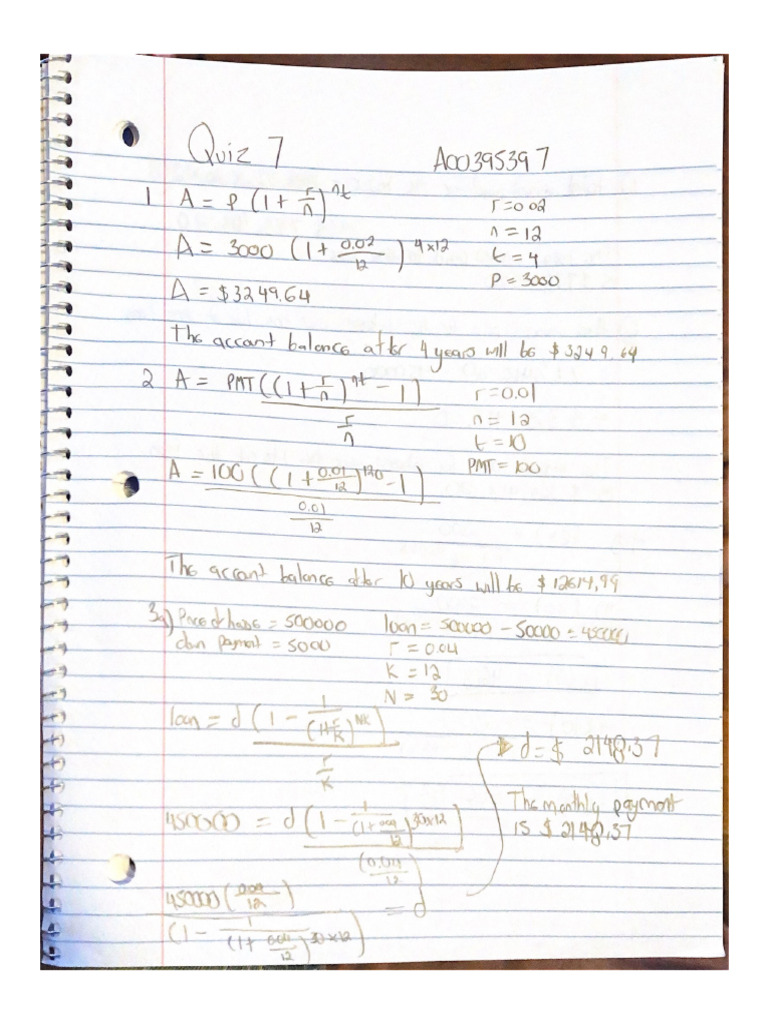 Quiz 7 A00395397
1 A = P (1 + r/n)^nt r = 0.02
n = 12
A = 3000 (1 + 0.02/12)^4x12 t = 4
P = 3000
A = $3249.64
The account balance after 4 years will be $3249.64
2 A = PMT((1 + r/n)^nt - 1) / (r/n) r = 0.01
n = 12
t = 10
A = 100((1 + 0.01/12)^120 - 1) / (0.01/12) PMT = 100
The account balance after 10 years will be $12614,99
3a) Price of house = 500000 loan = 500000 - 50000 = 450000
down payment = 5000 r = 0.04
K = 12
N = 30
loan = d(1 - 1/(1+r/k)^NK) / (r/k)
450000 = d(1 - 1/(1+0.04/12)^30x12) / (0.04/12)
450000(0.04/12) / (1 - 1/(1+0.04/12)^30x12) = d
d = $ 2148.37
The monthly payment
is $ 2148.37